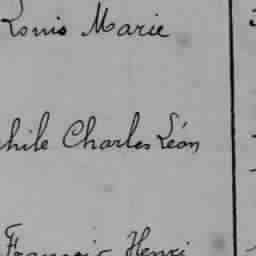 Louis Marie
hile Charles Léon
François Henri